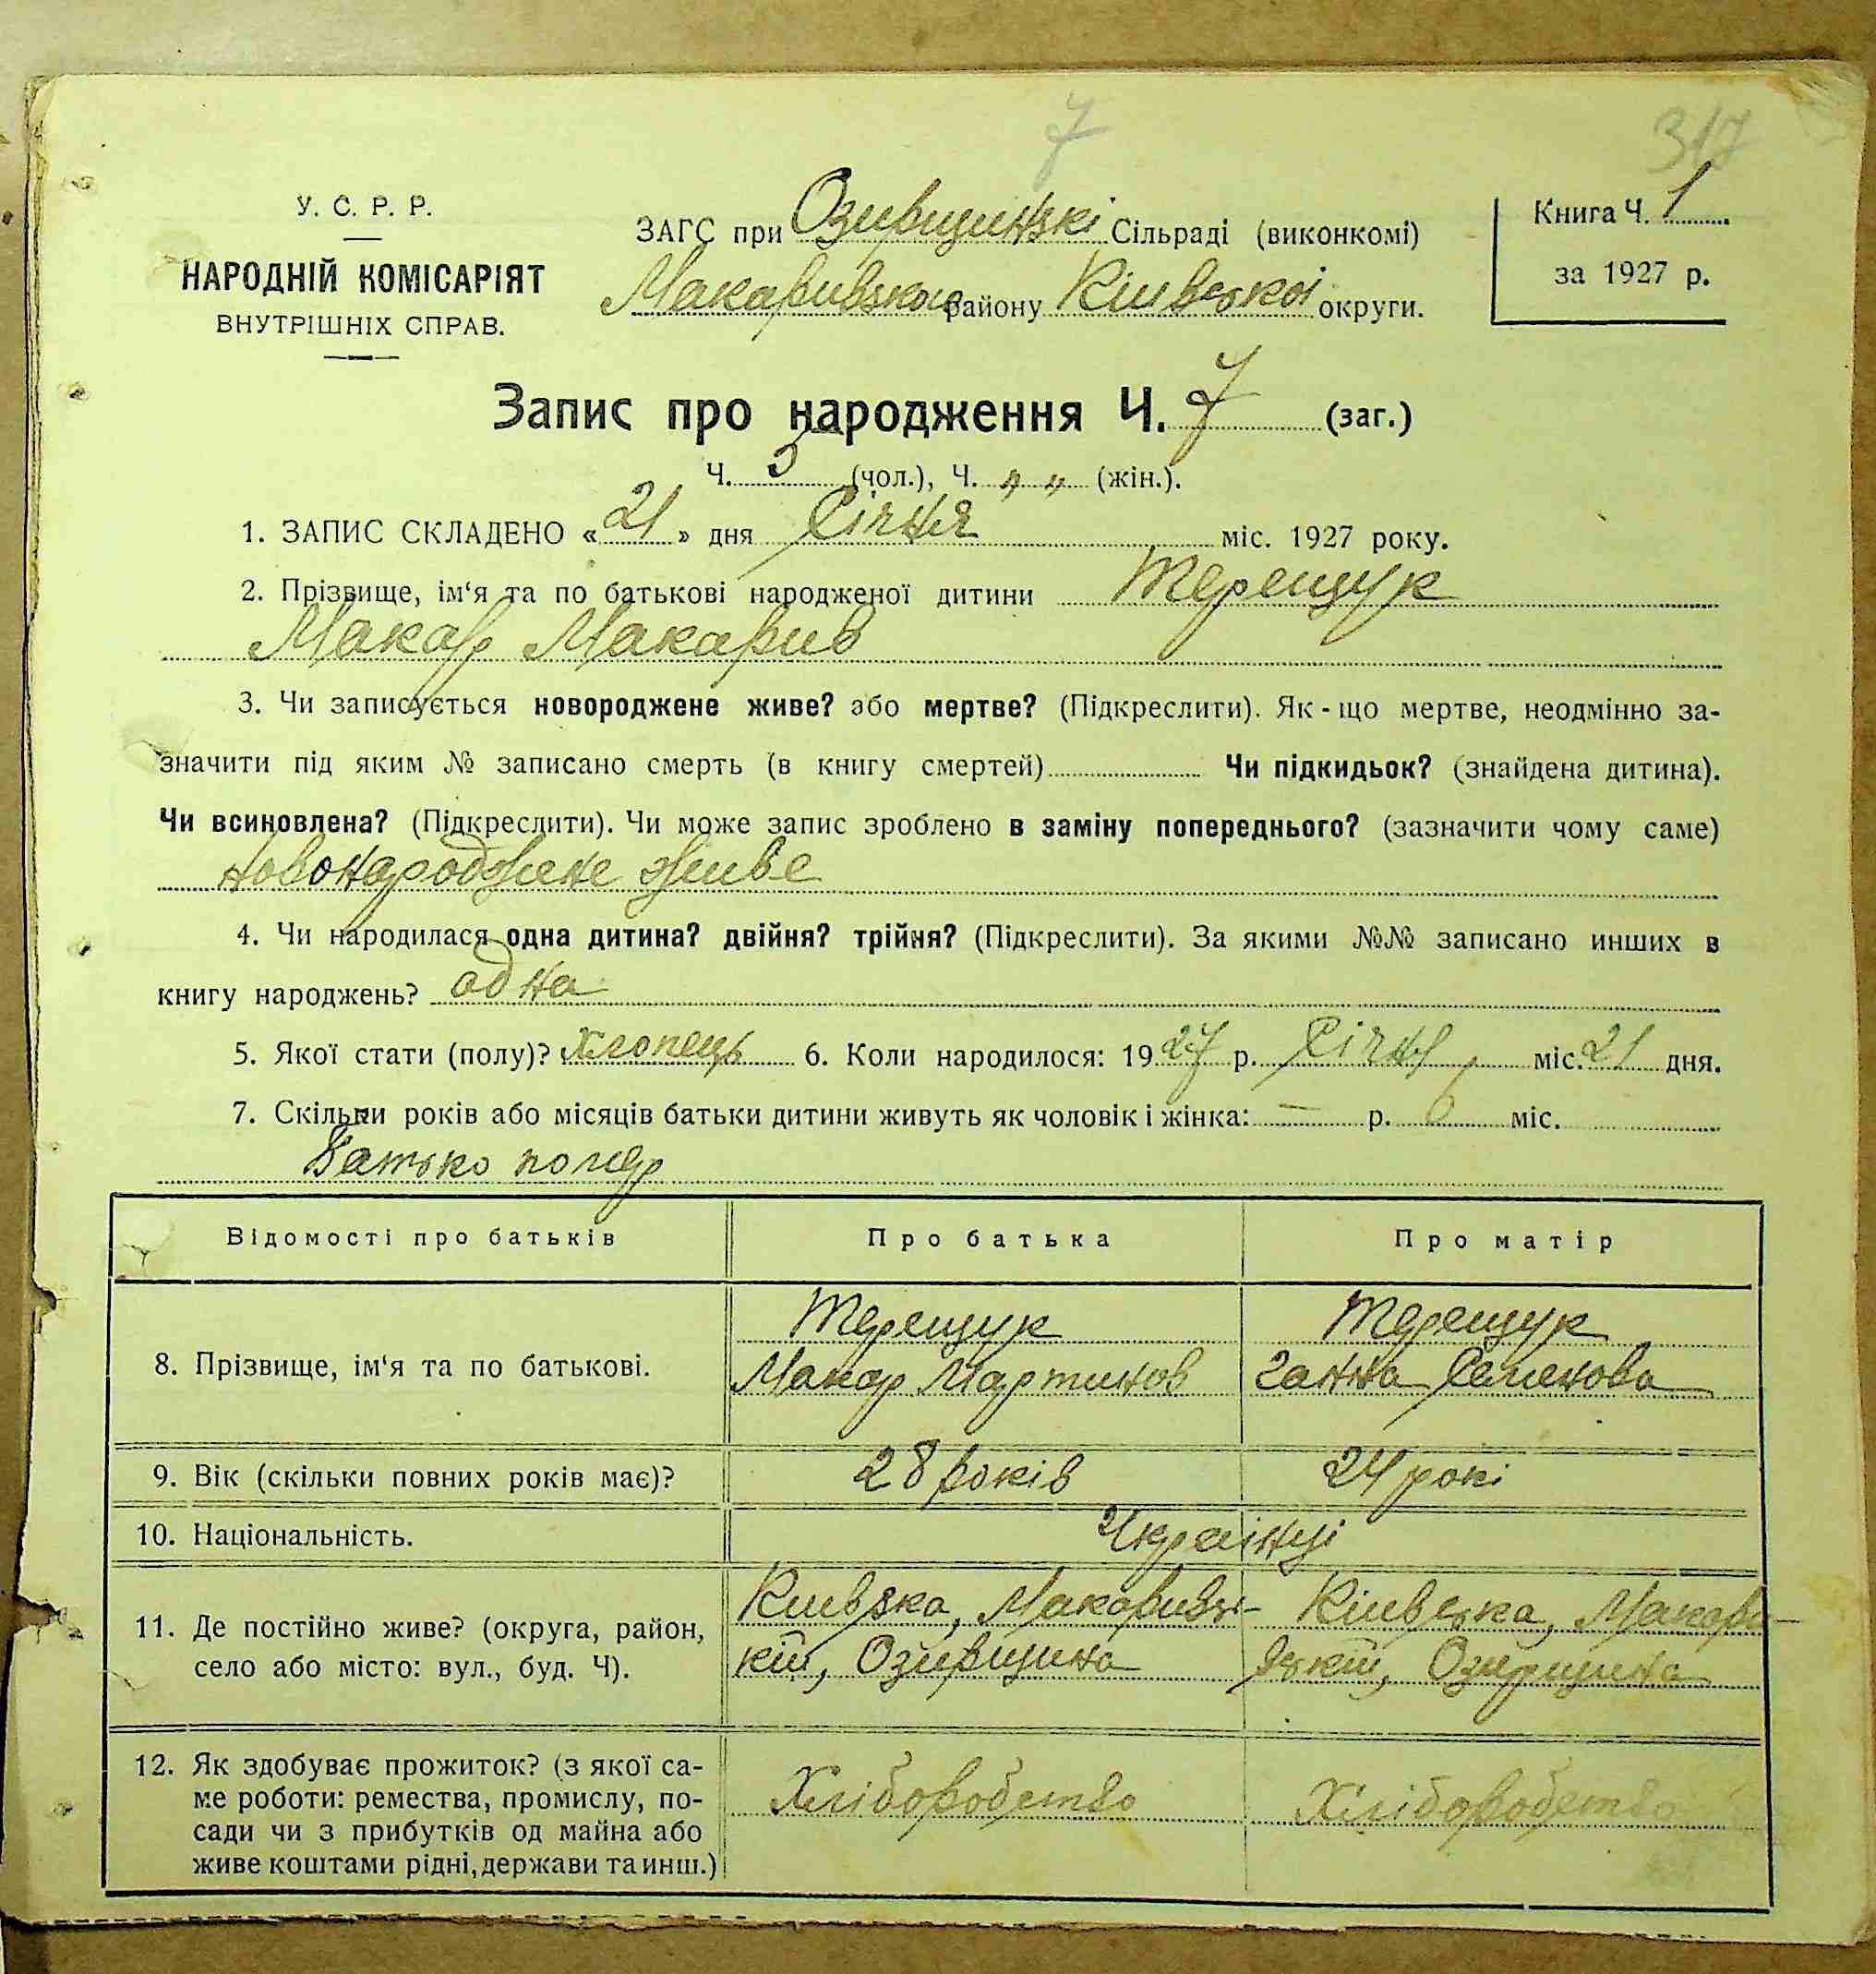 7
317
У. С. Р. Р.
НАРОДНІЙ КОМІСАРІЯТ
ВНУТРІШНІХ СПРАВ.
ЗАГС при Озирщинзкі Сільраді (виконкомі)
Макаривзкого району Кіивської округи.
Книга Ч. 1
за 1927 р.
Запис про народження Ч. 7 (заг.)
Ч. 5 (чол.), Ч. „ „ (жін.).
1. ЗАПИС СКЛАДЕНО «21» дня Січня міс. 1927 року.
2. Прізвище, ім‘я та по батькові народженої дитини Терещук
Макар Макарив
3. Чи записується новороджене живе? або мертве? (Підкреслити). Як-що мертве, неодмінно за-
значити під яким № записано смерть (в книгу смертей) Чи підкидьок? (знайдена дитина).
Чи всиновлена? (Підкреслити). Чи може запис зроблено в заміну попереднього? (зазначити чому саме)
новонароджене живе
4. Чи народилася одна дитина? двійня? трійня? (Підкреслити). За якими №№ записано инших в
книгу народжень? одна
5. Якої стати (полу)? Хлопець 6. Коли народилося: 1927 р. Січня міс. 21 дня.
7. Скільки років або місяців батьки дитини живуть як чоловік і жінка: — р. 6 міс.
Батько помер
Відомості про батьків Про батька Про матір
8. Прізвище, ім‘я та по батькові.
Терещук
Макар Мартинов
Терещук
Ганна Семенова
9. Вік (скільки повних років має)? 28 років 24 рокі
10. Національність. Украінці
11. Де постійно живе? (округа, район,
село або місто: вул., буд. Ч).
Киівзка, Макаривзь-
кій, Озирщина
Кіивська, Макари-
взький, Озирщина
12. Як здобуває прожиток? (з якої са-
ме роботи: ремества, промислу, по-
сади чи з прибутків од майна або
живе коштами рідні, держави та инш.)
Хліборобство
Хліборобство